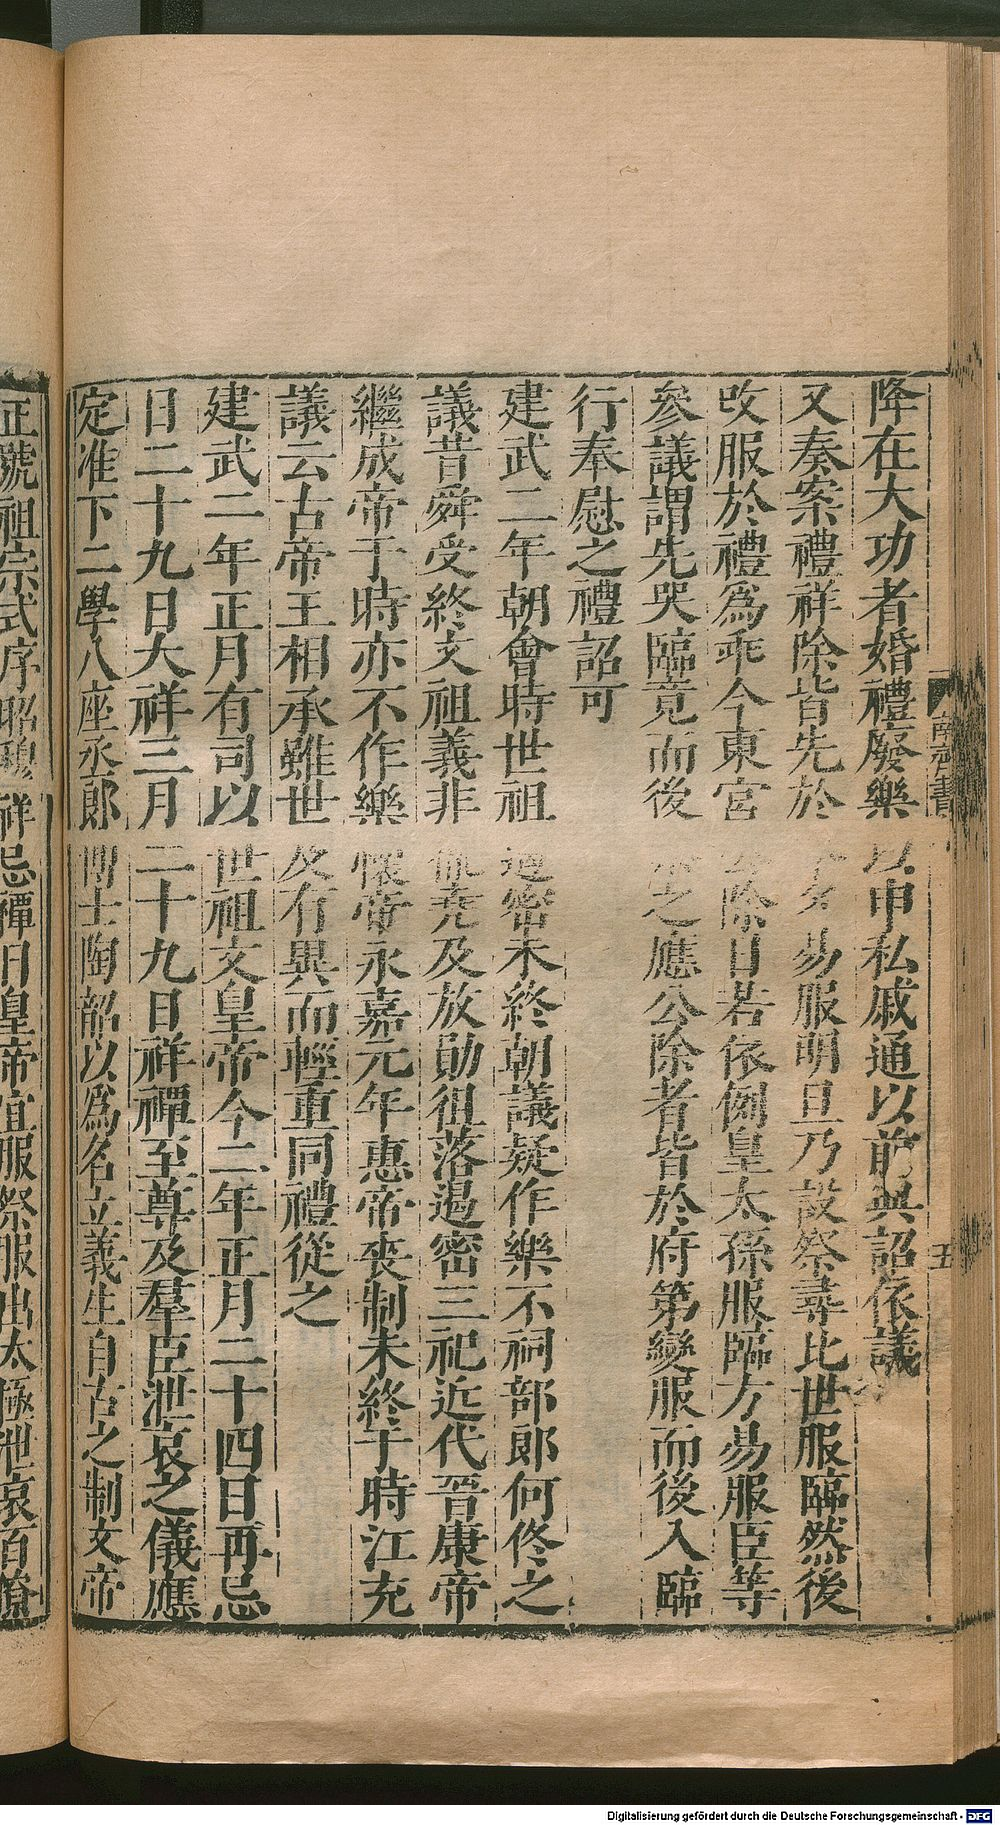 降在大功者婚禮廢樂以申私戚通以前典詔依議
又奏案禮祥除皆先於 易服明旦乃設祭尋比世服臨然後
改服於禮爲乖今東宮 除日若依例皇太孫服臨方易服臣等
參議謂先哭臨竟而後 之應公除者皆於府第變服而後入臨
行奉慰之禮詔可
建武二年朝會時世祖遏密未終朝議疑作樂不祠部郎何佟之
議昔舜受終文祖義非 堯及放勛徂落遏密三祀近代晉康帝
繼成帝于時亦不作樂懷帝永嘉元年惠帝喪制未終于時江充
議云古帝王相承雖世及有異而輕重同禮從之
建武二年正月有司以世祖文皇帝今二年正月二十四日再忌
日二十九日大祥三月二十九日祥禫至尊及羣臣泄哀之儀應
定准下二學八座丞郎博士陶韶以爲名立義生自古之制文帝
正號祖宗式序昭穆祥忌禫日皇帝宜服祭服出太極泄哀百僚
南齊書
五
Digitalisierung gefördert durch die Deutsche Forschungsgemeinschaft - DFG